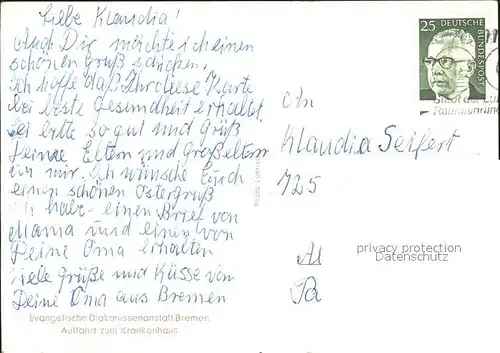 Liebe Klaudia!
Auch Dir möchte ich einen
schönen Gruß schicken.
Ich hoffe daß Ihr diese Karte
bei beste Gesundheit erhaltet.
Sei bitte so gut und Grüß
Deine Eltern und Großeltern
von mir. Ich wünsche Euch
einen schönen Ostergruß
ich habe einen Brief von
Mama und einen von
Deine Oma erhalten
Viele Grüße und Küsse von
Deine Oma aus Bremen
Evangelische Diakonissenanstalt Bremen,
Auffahrt zum Krankenhaus
25 DEUTSCHE
BUNDESPOST
Stadt der
Raumfahrt
An
Klaudia Seifert
725
privacy protection
Datenschutz